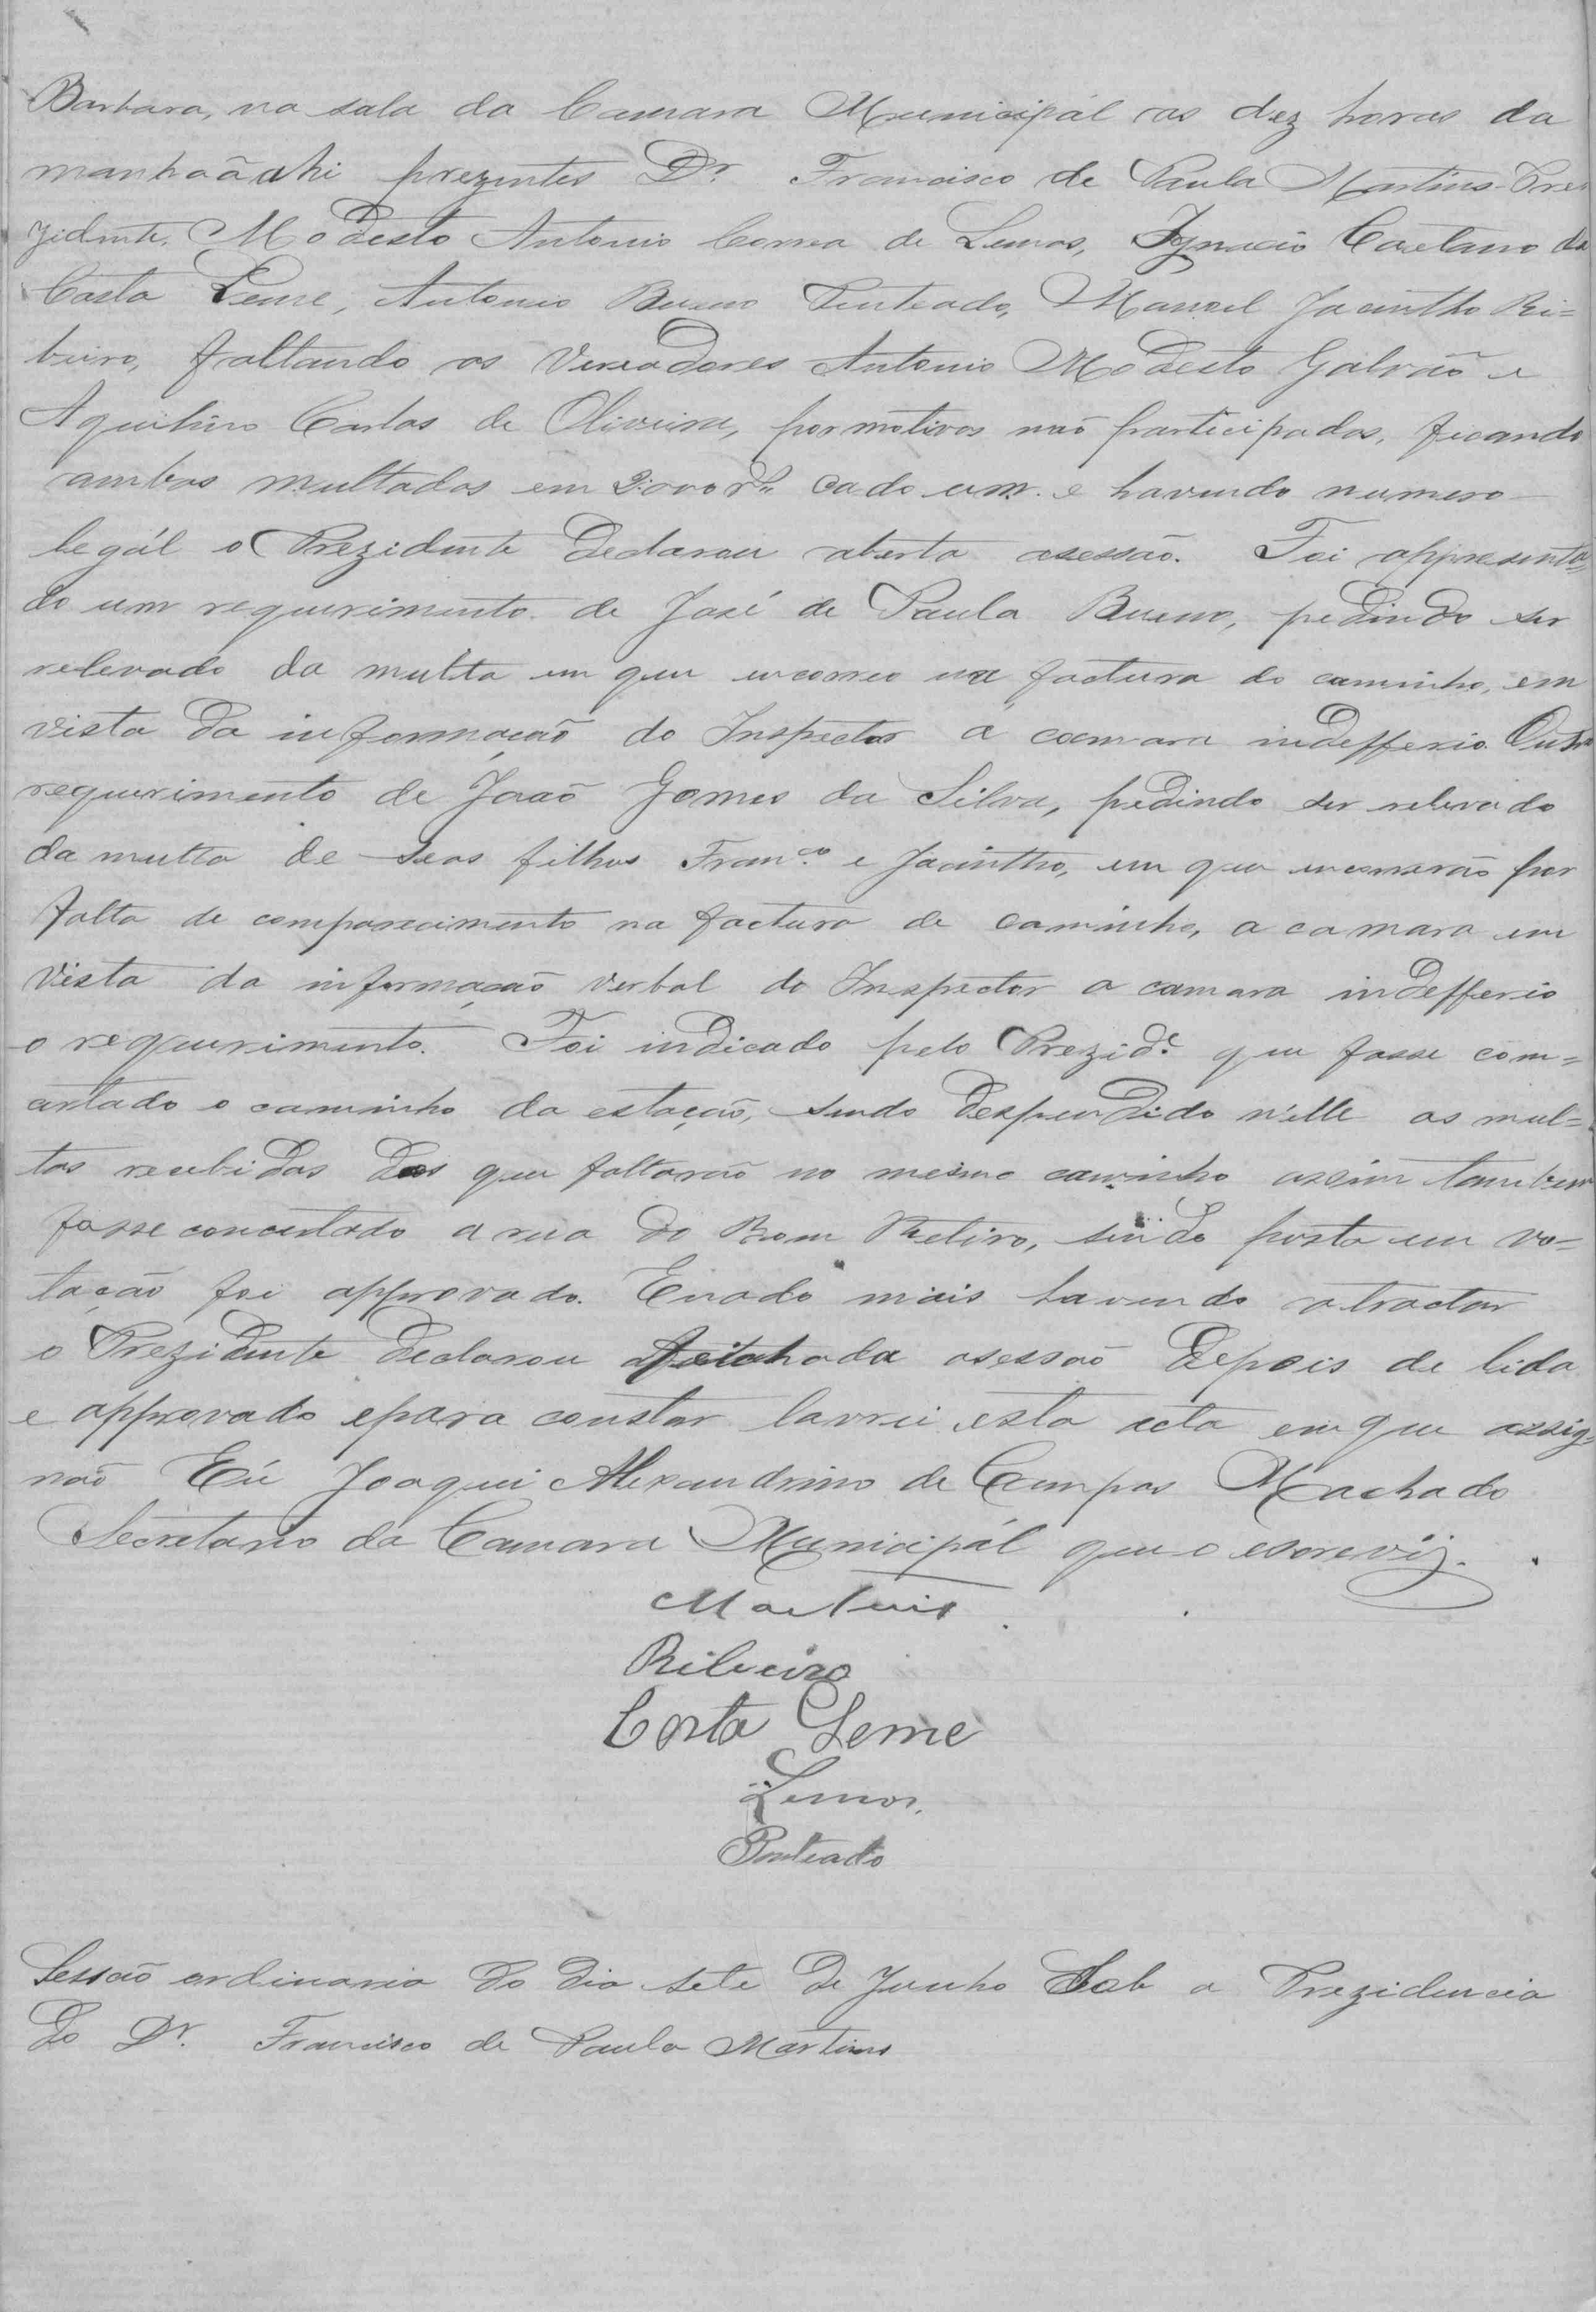 Barbara, na sala da Camara Municipál as dez horas da
manhaã ahi prezentes Dr. Francisco de Paula Martins Pre-
zidente, Modesto Antonio Correa de Lemos, Ignacio Caetano da
Costa Leme, Antonio Bueno Penteado, Manoel Jacintho Ri=
beiro, faltando os Vereadores Antonio Modesto Galvão e
Aquilino Carlos de Oliveira, por motivos não participados, ficando
ambos multados em 2:000 rs. cada um. e havendo numero
legál o Prezidente Declarou aberta asessão. Foi appresenta=
do um requerimento de José de Paula Bueno, pedindo ser
relevado da multa em que encorreo na factura do caminho, em
vista da informação do Inspector a camara indefferio. Outro
requerimento de João Gomes da Silva, pedindo ser relevado
da multa de seos filhos Franco. e Jacintho, em que encorrerão por
falta de comparecimento na factura de caminho, a camara em
Vista da informação verbal do Inspector a camara indefferio
o requerimento. Foi indicado pelo Prezide. que fosse com=
certado o caminho da estação, sendo despendido n'elle as mul=
tas recebidas dos que faltarão no mesmo caminho assim tambem
fosse concertado a rua do Bom Retiro, sendo posta em vo=
tação foi approvado. Enada mais havendo atractar
o Prezidente Declarou asessão Depois de lida
e approvado epara constar lavrei esta acta em que assig=
não Eú Joaqui Alexandrino de Campos Machado
Secretario da Camara Municipál que o escrevij.
Martins
Ribeiro
Costa Leme
Lemos.
Penteado
Sessão ordinaria do dia sete de Junho Sob a Prezidencia
do Dr. Francisco de Paula Martins